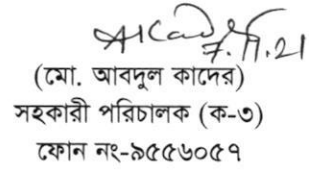 ৭.গ.২১
(মো. আবদুল কাদের)
সহকারী পরিচালক (ক-৩)
ফোন নং-৯৫৫৬০৫৭